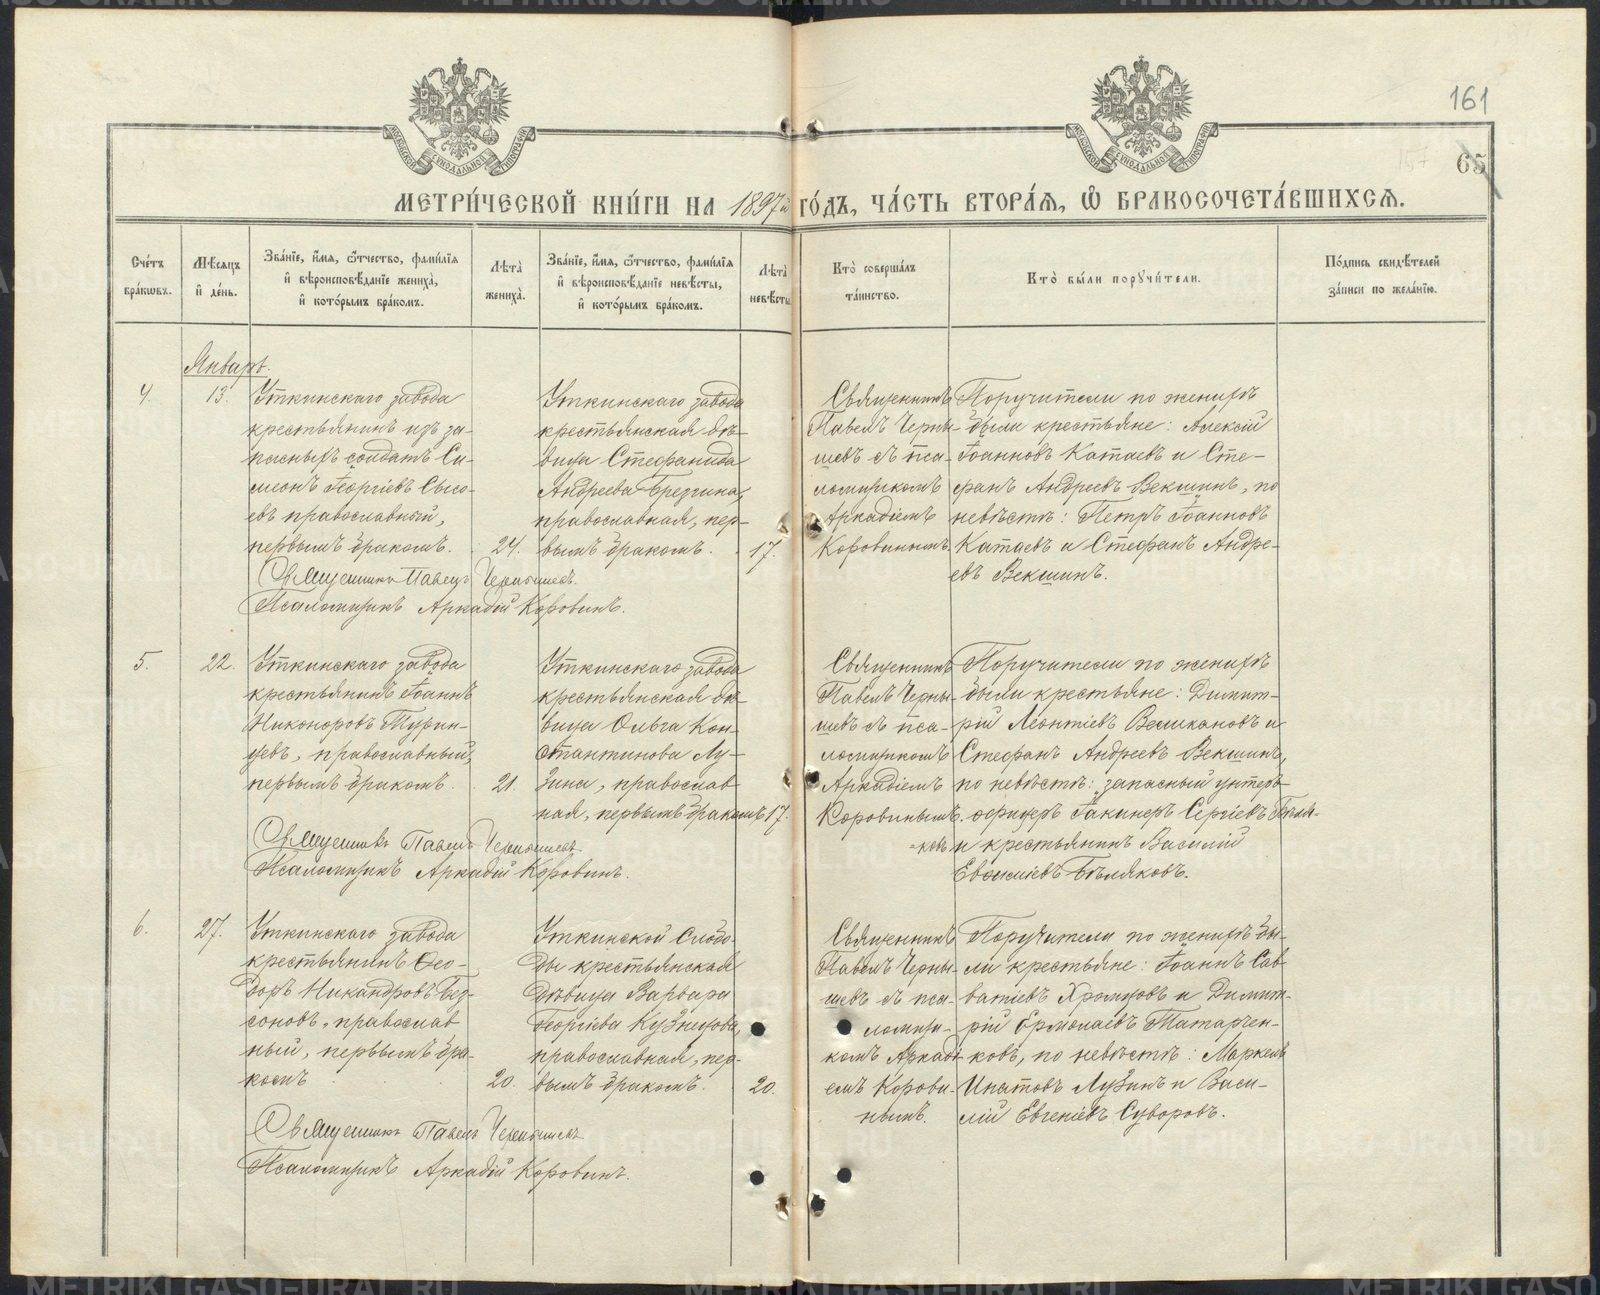 161
65
МЕТРИ́ЧЕСКОЙ КНИ́ГИ НА 1897й ГО́ДЪ, ЧА́СТЬ ВТОРА́Я, Ѽ БРАКОСОЧЕТА́ВШИХСЯ.
Сче́тъ
бра́ковъ.
Мѣ́сяцъ
и де́нь.
Зва́ніе, и́мя, ѻ́тчество, фами́лія
и вѣроисповѣ́даніе жениха̀,
и кото́рымъ бра́комъ.
Лѣ́та
жениха̀.
Зва́ніе, и́мя, ѻ́тчество, фами́лія
и вѣроисповѣ́даніе невѣ́сты,
и кото́рымъ бра́комъ.
Лѣ́та
невѣ́сты
Кто̀ соверша́лъ
та́инство.
Кто̀ бы́ли порꙋчи́тели.
По́дпись свидѣ́телей
за́писи по жела́нію.
Январь.
4.
13.
Уткинскаго завода
крестьянинъ изъ за-
пасныхъ солдатъ Си-
меонъ Георгіевъ Сысо-
евъ православный,
первымъ бракомъ.
24.
Уткинскаго завода
крестьянская дѣ-
вица Стефанида
Андреева Брезгина,
православная, пер-
вымъ бракомъ.
17.
Священникъ
Павелъ Черны-
шевъ съ пса-
ломщикомъ
Аркадіемъ
Коровинымъ.
Поручители по женихѣ
были крестьяне: Алексій
Іоанновъ Катаевъ и Сте-
фанъ Андреевъ Векшинъ, по
невѣстѣ: Петръ Іоанновъ
Катаевъ и Стефанъ Андре-
евъ Векшинъ.
Священникъ Павелъ Чернышевъ.
Псаломщикъ Аркадій Коровинъ.
5.
22.
Уткинскаго завода
крестьянинъ Іоаннъ
Никоноровъ Турин-
цевъ, православный,
первымъ бракомъ.
21.
Уткинскаго завода
крестьянская дѣ-
вица Ольга Кон-
стантинова Лу-
зина, православ
ная, первымъ бракомъ
17.
Священникъ
Павелъ Черны-
шевъ съ пса-
ломщикомъ
Аркадіемъ
Коровинымъ.
Поручители по женихѣ
были крестьяне: Димит-
рій Леонтіевъ Великановъ и
Стефанъ Андреевъ Векшинъ,
по невѣстѣ: запасный унтеръ-
офицеръ Іакинѳъ Сергіевъ Бѣля-
-ковъ и крестьянинъ Василій
Евсиміевъ Бѣляковъ.
Священникъ Павелъ Чернышевъ.
Псаломщикъ Аркадій Коровинъ.
6.
27.
Уткинскаго завода
крестьянинъ Ѳео-
доръ Никандровъ Без-
соновъ, православ
ный, первымъ бра-
комъ
20.
Уткинской Слобо-
ды крестьянская
дѣвица Варвара
Георгіева Кузнецова,
православная, пер-
вымъ бракомъ.
20.
Священникъ
Павелъ Черны-
шевъ съ пса-
ломщи-
комъ Аркаді-
емъ Корови-
нымъ.
Поручители по женихѣ бы-
ли крестьяне: Іоаннъ Сав-
ватіевъ Хромцовъ и Димит-
рій Ермолаевъ Татарчен-
ковъ, по невѣстѣ: Маркелъ
Ипатовъ Лузинъ и Васи-
лій Евгеніевъ Суворовъ.
Священникъ Павелъ Чернышевъ.
Псаломщикъ Аркадій Коровинъ.
METRIKI.GASO-URAL.RU